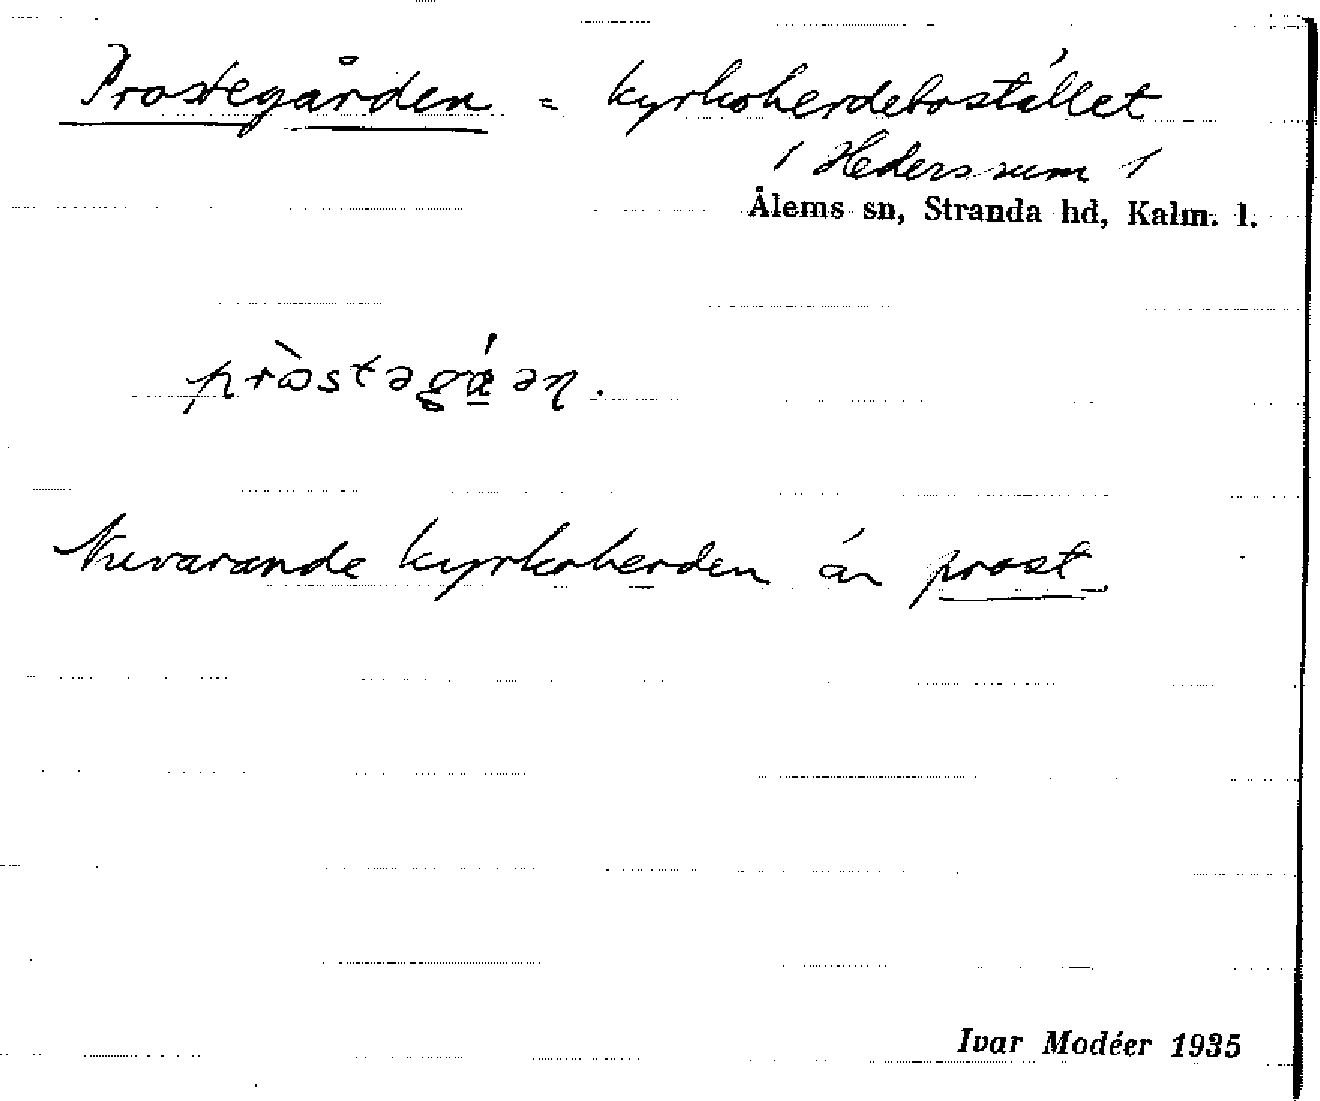 Prostegården = kyrkoherdebostället
/ Hederssum /
Ålems sn, Stranda hd, Kalm. l.
pròstəgá̱əɳ.
Nuvarande kyrkoherden är prost.
Ivar Modéer 1935